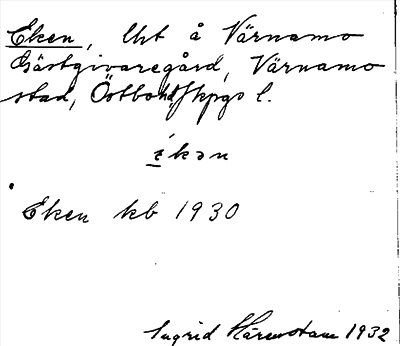 Eken, Urt å Värnamo
Gästgivaregård, Värnamo
stad, Östbo hd, Jkpgs l.
ékən
Eken kb 1930
Ingrid 1932